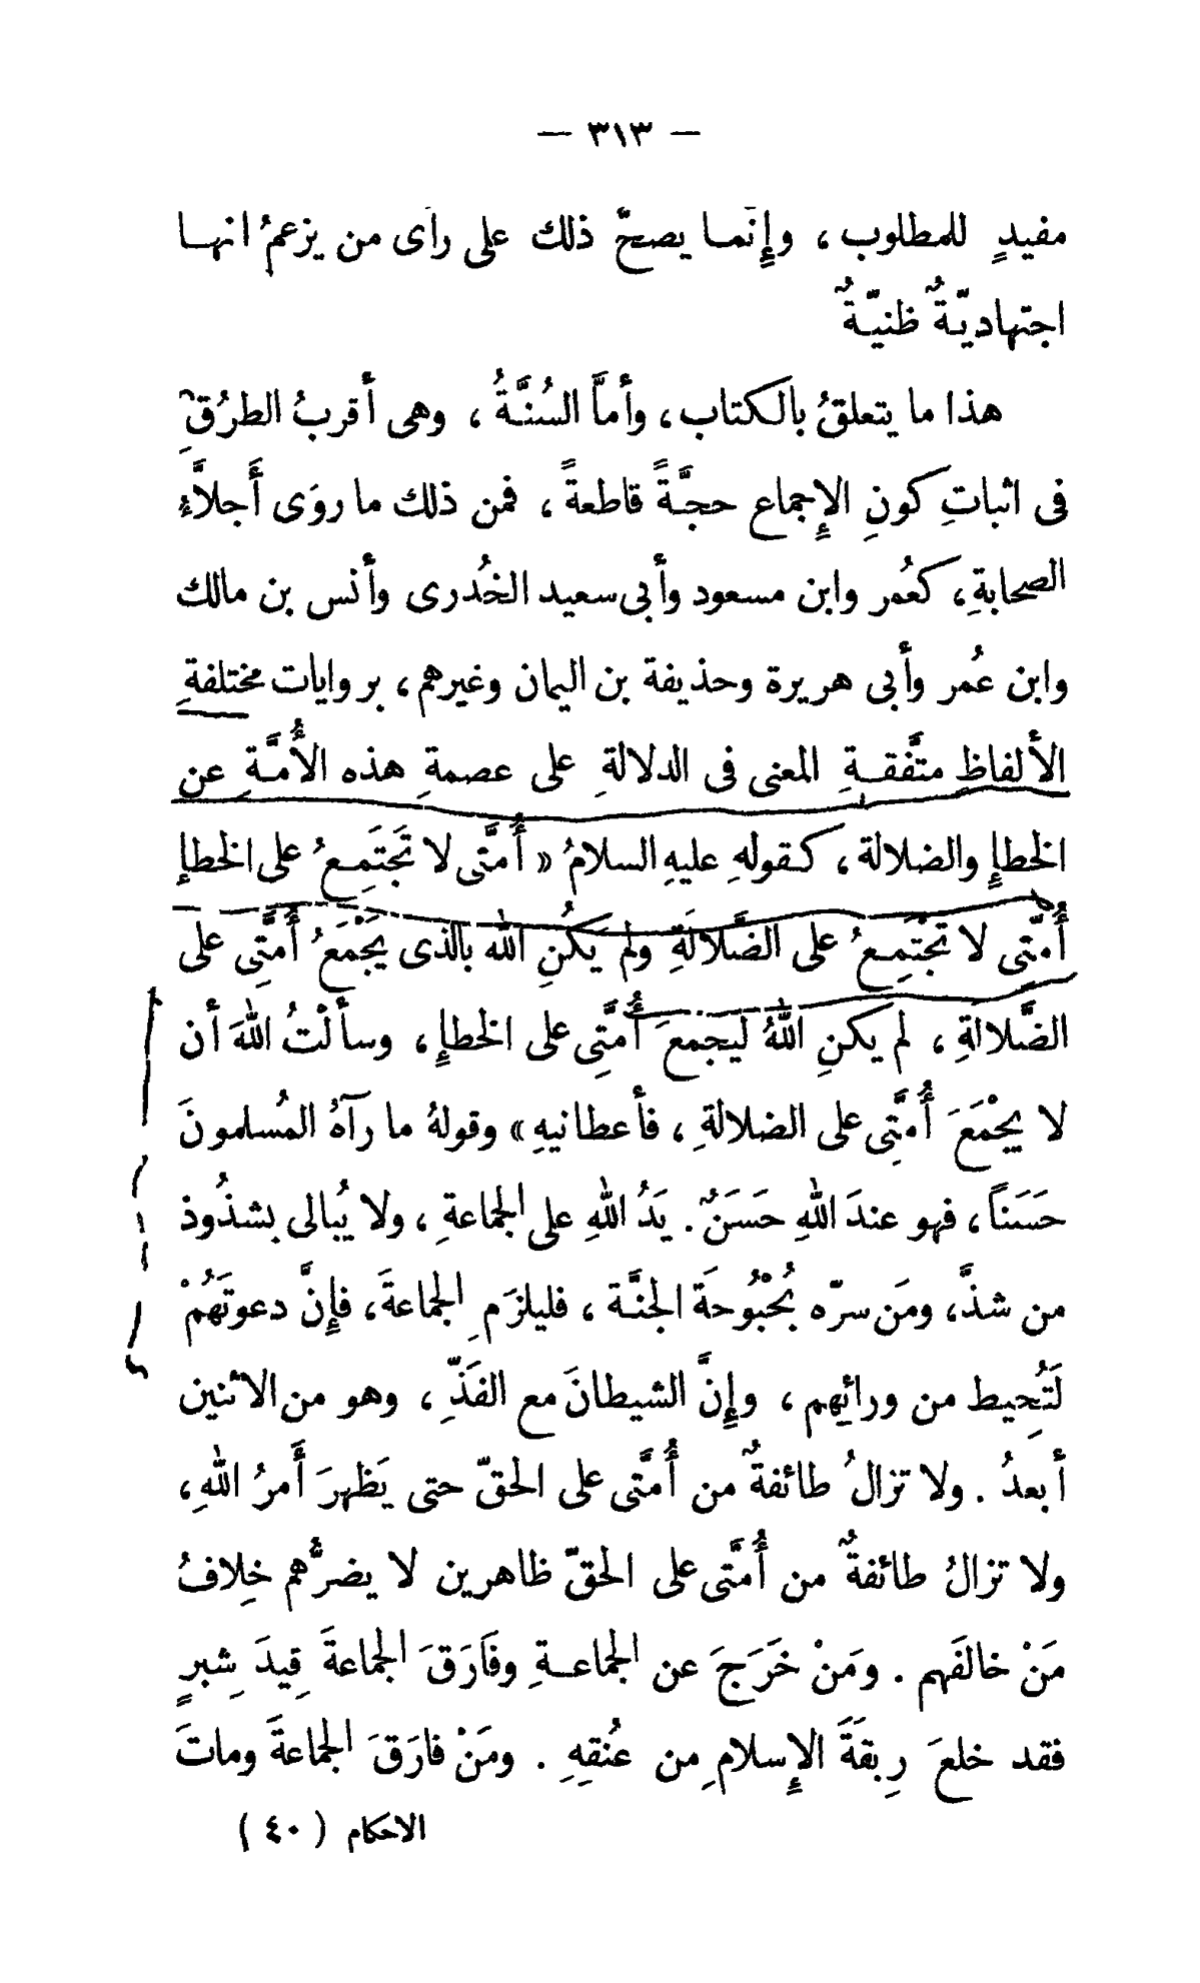 — ٣١٣ —
مفيدٍ للمطلوب ، وإِنّما يصحّ ذلك على رأى من يزعمُ انها
اجتهاديّةٌ ظنيّةٌ
هذا ما يتعلقُ بالكتاب ، وأمَّا السُنَّةُ ، وهى أقربُ الطرُقِ
فى اثباتِ كونِ الإِجماع حجَّةً قاطعةً ، فمن ذلك ما روَى أَجلاَّءُ
الصحابةِ ، كعُمر وابن مسعود وأبى سعيد الخُدرى وأنس بن مالك
وابن عُمر وأبى هريرة وحذيفة بن اليمان وغيرهم ، بروايات مختلفةِ
الألفاظِ متَّفقةِ المعنى فى الدلالةِ على عصمةِ هذه الأُمَّةِ عن
الخطإِ والضلالة ، كقولهِ عليهِ السلامُ « أُمتَّى لا تَجتَمِعُ على الخطإِ
أُمتّى لا تجْتَمِعُ على الضَّلالَةِ ولم يَكُنِ الله بالذى يَجْمَعُ أُمتَّى على
الضَّلالةِ ، لم يكنِ اللهُ ليجمعَ أُمتَّى على الخطإِ ، وسألْتُ اللهَ أن
لا يجْمَعَ أُمتَّى على الضلالةِ ، فأعطانيهِ » وقولهُ ما رآهُ المُسلمونَ
حَسَناً ، فهو عندَ اللهِ حَسَنٌ . يَدُ اللهِ على الجماعةِ ، ولا يُبالى بشذُوذ
من شذَّ ، ومَن سرّه بُحْبُوحَة الجنَّة ، فليلزَمِ الجماعةَ ، فإِنَّ دعوتَهُمْ
لَتُحِيط من ورائِهم ، وإِنَّ الشيطانَ مع الفَذّ ، وهو من الاثنين
أبعدُ . ولا تزالُ طائفةٌ من أُمتَّى على الحقّ حتى يَظهرَ أَمرُ اللهِ ،
ولا تزالُ طائفةٌ من أُمتَّى على الحقّ ظاهرين لا يضرُّهم خِلافُ
مَنْ خالفَهم . ومَنْ خَرَجَ عن الجماعةِ وفَارَقَ الجماعةَ قِيدَ شِبرٍ
فقد خلعَ رِبقَةَ الإِسلامِ من عُنقِهِ . ومَنْ فارَقَ الجماعةَ وماتَ
الاحكام ( ٤٠ )